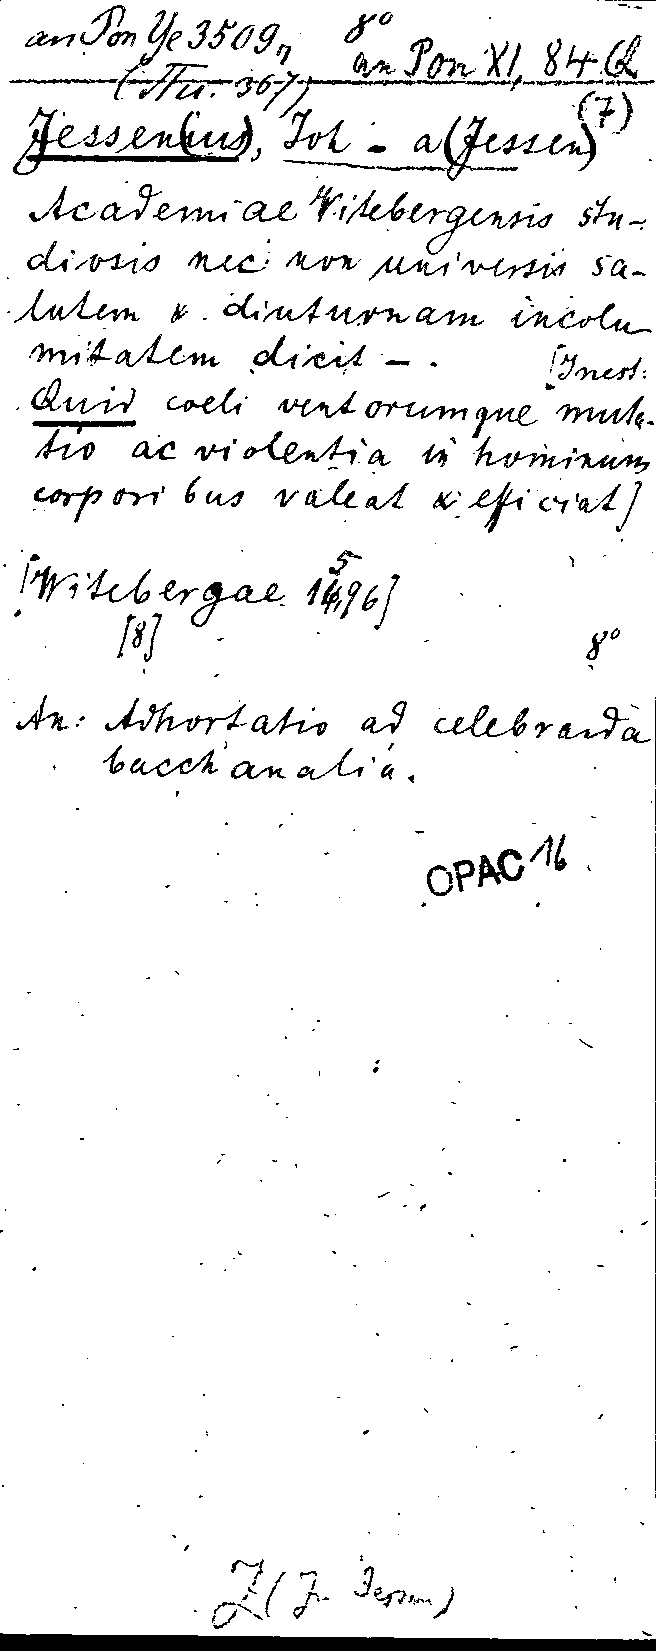 an Pon Ye 3509, 8°
an Pon XI, 84 Q
(7)
Jessen(ius), Joh - a (Jessen)
Academiae Vitebergensis stu-
diosis nec non universis sa-
lutem & diuturnam incolu
mitatem dicit - . [Inest:
Quid coeli ventorumque muta-
tio ac violentia in hominum
corporibus valeat & efficiat]
[Witebergae 1596]
[8] 8°
An: Adhortatio ad celebranda
bacchanalia.
OPAC 16
Jessen)